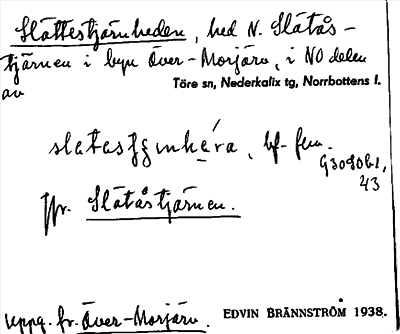 Slåttestjärnheden, hed N. Slåtås-
tjärnen i byn Över-Morjärv, i NO delen
av
Töre sn, Nederkalix tg, Norrbottens l.
bf. fem.
G3090b1,
43
Jfr. Slåtåstjärnen.
Uppg. fr. Över-Morjärv.
EDVIN BRÄNNSTRÖM 1938.